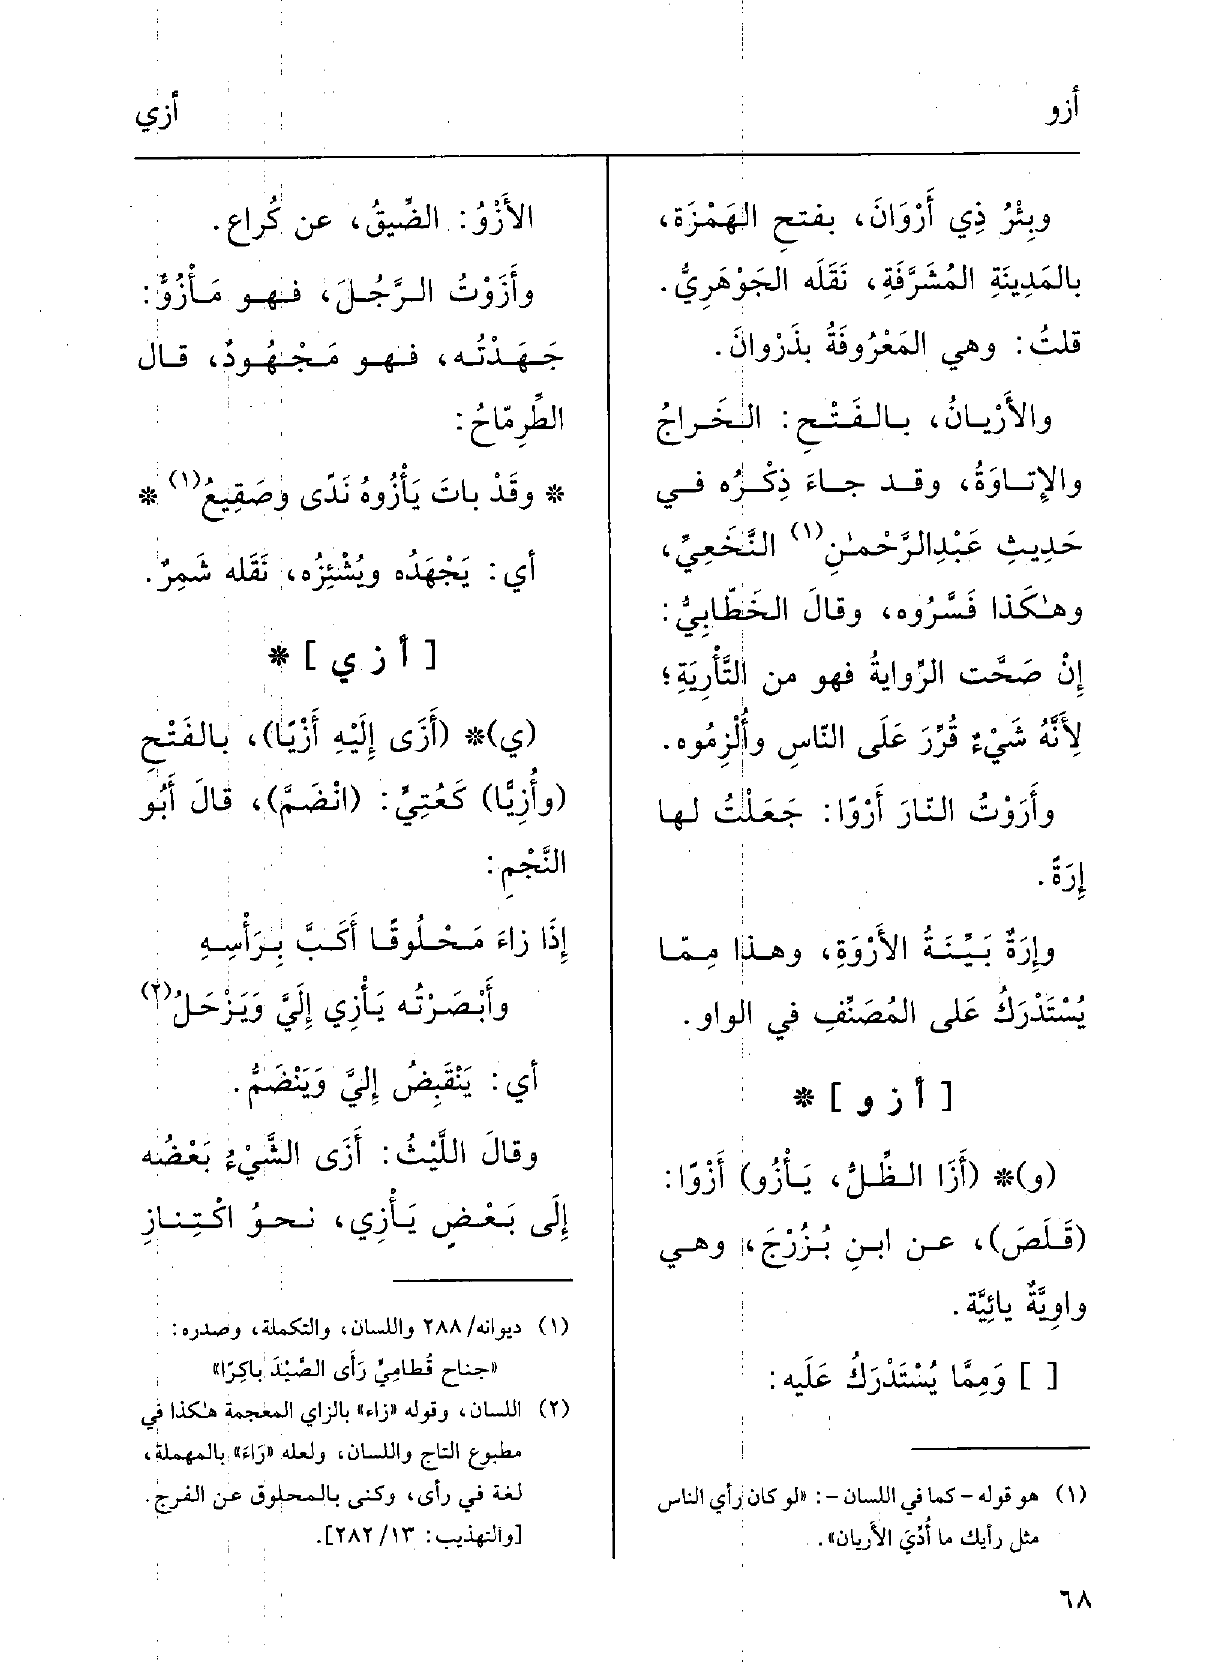 أزو
أزي
وبِئْرُ ذِي أَرْوَانَ، بفتحِ الهَمْزَة،
بالمَدِينَةِ المُشَرَّفَةِ، نَقَلَه الجَوْهَرِيُّ.
قلتُ: وهي المَعْرُوفَةُ بذَرْوانَ.
والأَرْيـانُ، بـالـفَـتْـحِ: الـخَـراجُ
والإِتـاوَةُ، وقـد جـاءَ ذِكْـرُه فـي
حَدِيثِ عَبْدِالرَّحْمـٰنِ(١) النَّخَعِيِّ،
وهـٰكَذا فَسَّرُوه، وقالَ الخَطّابِيُّ:
إِنْ صَحَّت الرِّوايةُ فهو من التَّأْرِيَةِ؛
لِأَنَّهُ شَيْءٌ قُرِّرَ عَلَى النّاسِ وأُلْزِمُوه.
وأَرَوْتُ النّارَ أَرْوًا: جَعَلْتُ لها
إِرَةً.
وإِرَةٌ بَـيِّـنَـةُ الأَرْوَةِ، وهـذا مِـمّـا
يُسْتَدْرَكُ عَلى المُصَنِّفِ في الواو.
[ أ ز و ] *
(و)* (أَزَا الـظِّـلُّ، يَـأْزُو) أَزْوًا:
(قَـلَـصَ)، عـن ابـنِ بُـزُرْجَ، وهـي
واوِيَّةٌ يائِيَّة.
[ ] وَمِمَّا يُسْتَدْرَكُ عَلَيه:
(١) هو قوله - كما في اللسان -: «لو كان رأي الناس
مثل رأيك ما أُدِّيَ الأريان».
الأَزْوُ: الضِّيقُ، عن كُراع.
وأَزَوْتُ الـرَّجُـلَ، فـهـو مَـأْزُوٌّ:
جَـهَـدْتُـه، فـهـو مَـجْـهُـودٌ، قـال
الطِّرِمّاحُ:
* وقَدْ باتَ يَأْزُوهُ نَدًى وصَقِيعُ(١) *
أي: يَجْهَدُه ويُشْئِزُه، نَقَله شَمِرٌ.
[ أ ز ي ] *
(ي)* (أَزَى إِلَيْهِ أَزْيًا)، بالفَتْحِ
(وأُزِيًّا) كَعُتِيٍّ: (انْضَمَّ)، قالَ أَبُو
النَّجْمِ:
إِذَا زاءَ مَـحْـلُـوقًـا أَكَـبَّ بِـرَأْسِـهِ
وأَبْصَرْتُه يَأْزِي إِلَيَّ وَيَزْحَلُ(٢)
أي: يَنْقَبِضُ إِليَّ وَيَنْضَمُّ.
وقالَ اللَّيْثُ: أَزَى الشَّيْءُ بَعْضُه
إِلَى بَـعْـضٍ يَـأْزِي، نـحـوُ اكْـتِـنـازِ
(١) ديوانه/ ٢٨٨ واللسان، والتكملة، وصدره:
«جناح قُطامِيٍّ رَأى الصَّيْدَ باكِرًا»
(٢) اللسان، وقوله «زاء» بالزاي المعجمة هـٰكذا في
مطبوع التاج واللسان، ولعله «رَاءَ» بالمهملة،
لغة في رأى، وكنى بالمحلوق عن الفرج.
[والتهذيب: ١٣/ ٢٨٢].
٦٨